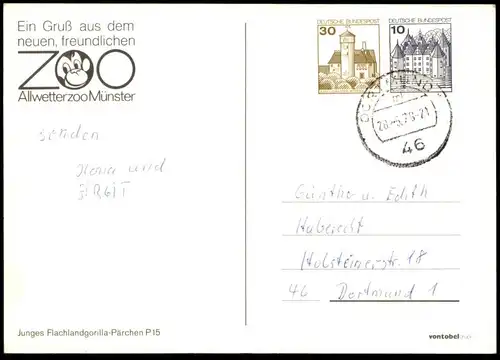 Ein Gruß aus dem
neuen, freundlichen
ZOO
AllwetterzooMünster
30 DEUTSCHE BUNDESPOST
10 DEUTSCHE BUNDESPOST
46
senden
und
Günther u. Edith
Haberecht
Holsteinerstr. 18
46 Dortmund 1
Junges Flachlandgorilla-Pärchen P15
vontobel